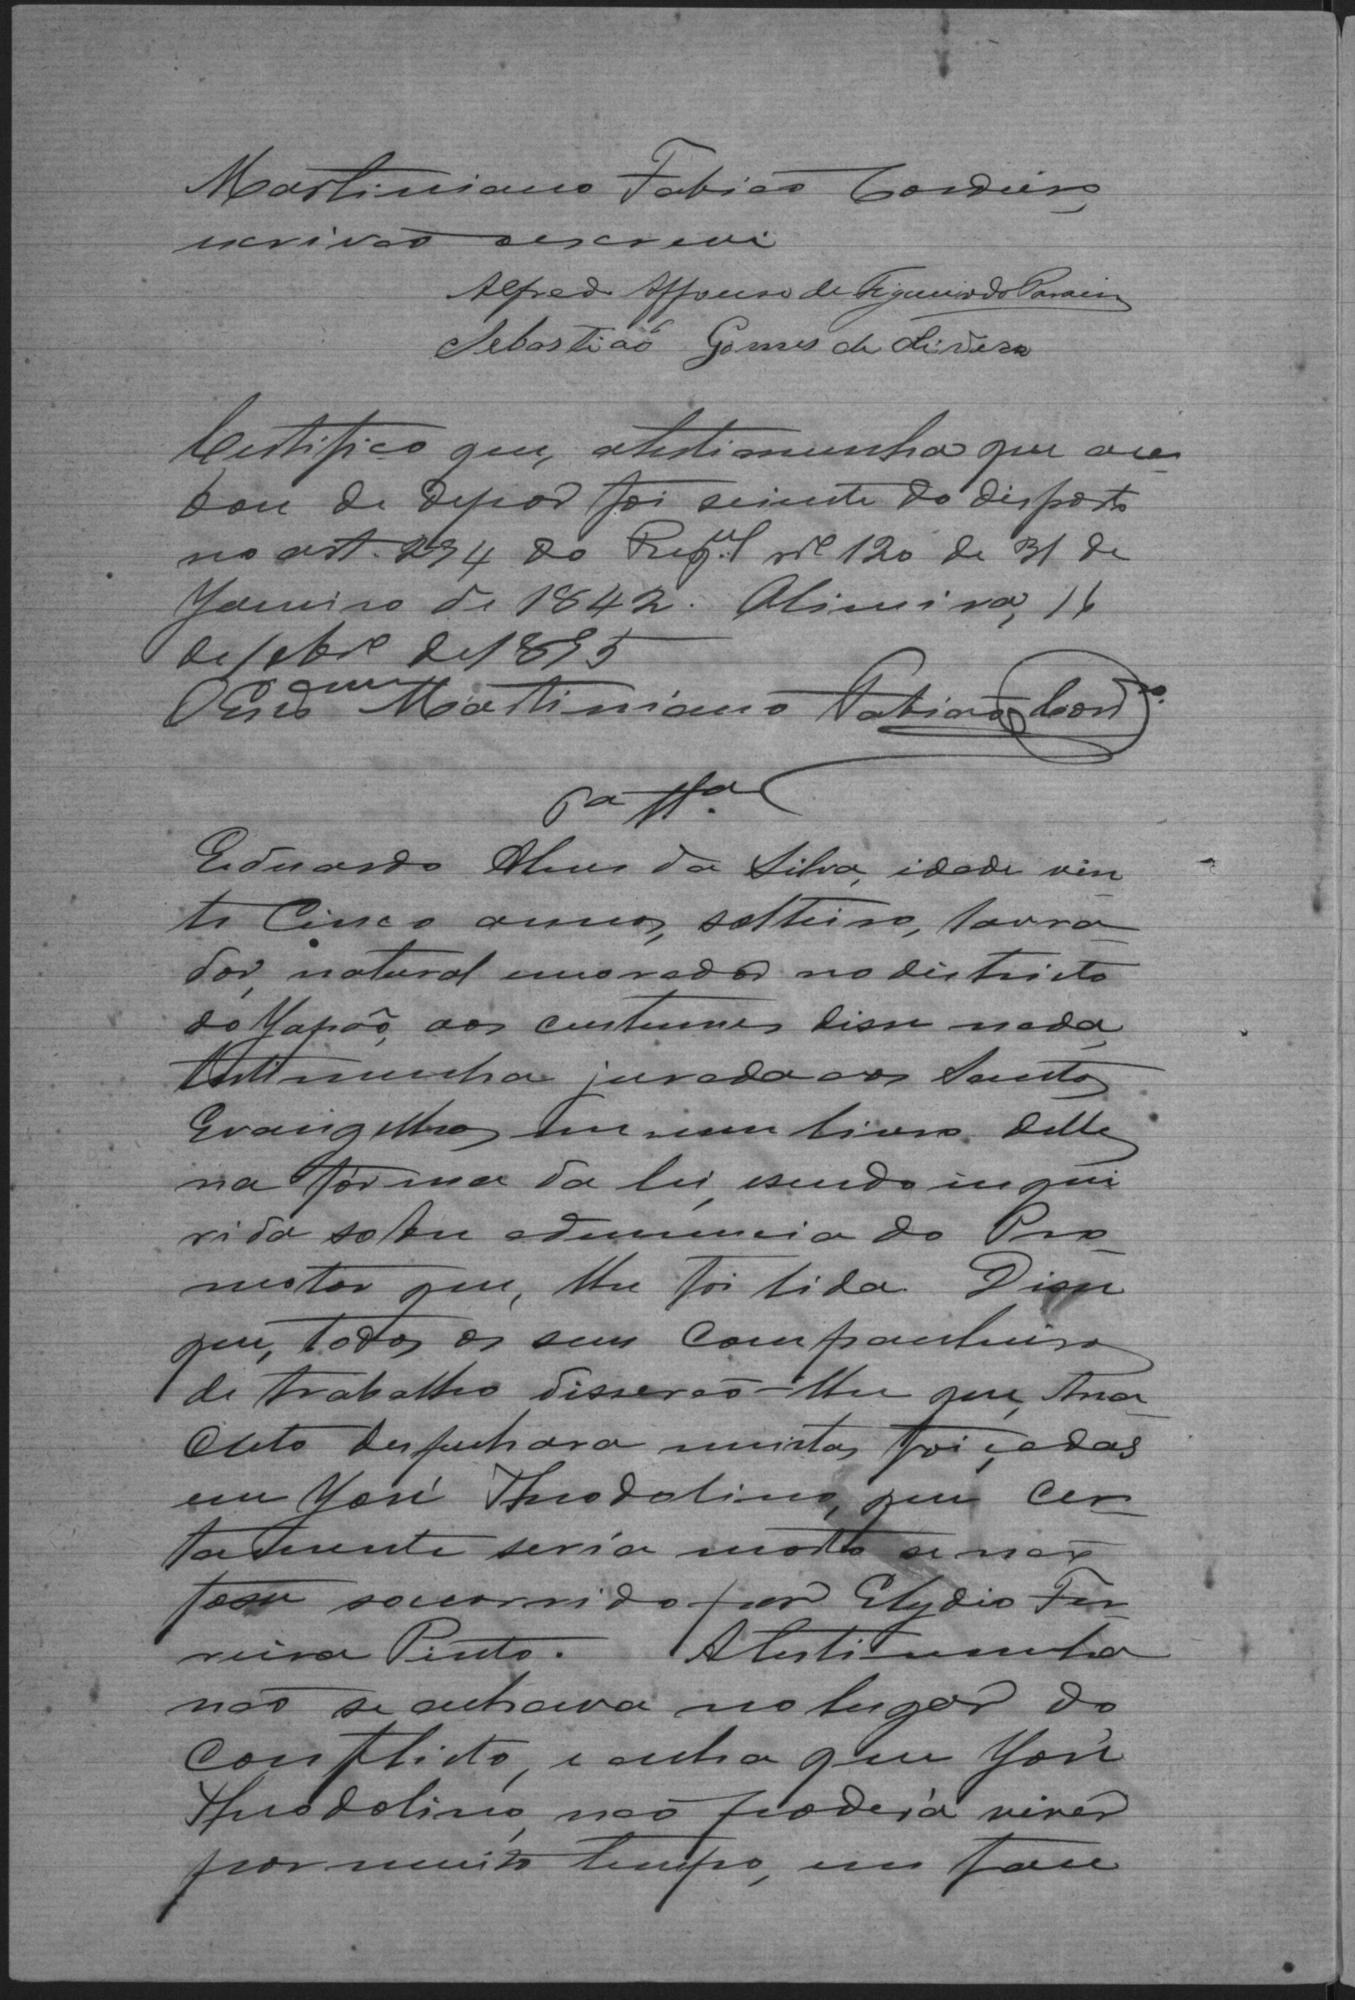 Martiniano Fabião Cordeiro
escrivão o escrevi
Alfredo Affonso de Figueiredo
Sebastião Gomes de Oliveira
Certifico que, a testimunha que aca-
bou de depor foi sciente do disposto
no art. 294 do Regul nº 120 de 31 de
Janeiro de 1842. 16
de 7bro de 1895
O Escrivam Martiniano Fabião Cordº.
6a Ttª.
Eduardo Alves da Silva, idade vin
te cinco annos, solteiro, lavra-
dor, natural e morador no districto
do Yapão, aos custumes disse nada,
testimunha jurada aos Santos
Evangelhos em um livro delles
na fórma da lei, e sendo inqui
rida sobre a denuncia do Pro-
motor que, lhe foi lida. Disse
que, todos os seus companheiros
de trabalho disserão-lhe que, Ana-
cleto desfechara muitas foiçadas
em José Theodolino, que cer-
tamente seria morto se não
fosse soccorrido por Elydio Fer-
reira Pinto. A testimunha
não se achava no lugar do
conflicto, e acha que José
Theodolino, não poderá viver
por muito tempo, em face